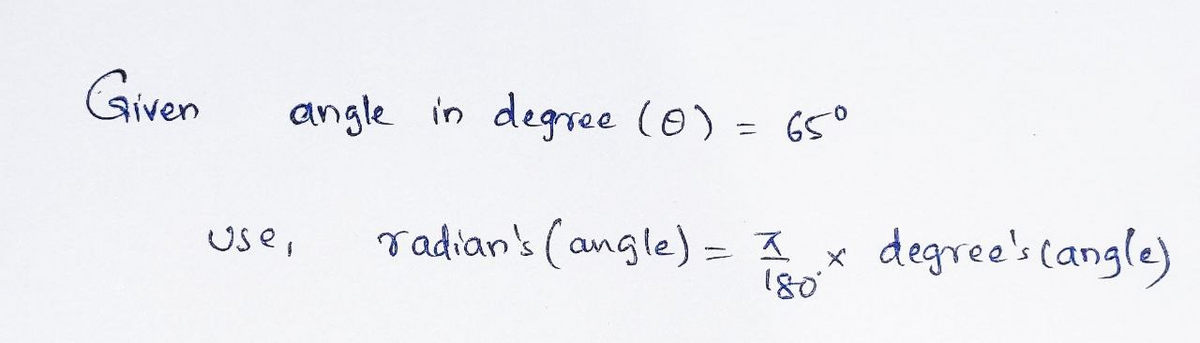 Given angle in degree (θ) = 65°
use, radian's (angle) = π/180° × degree's (angle)